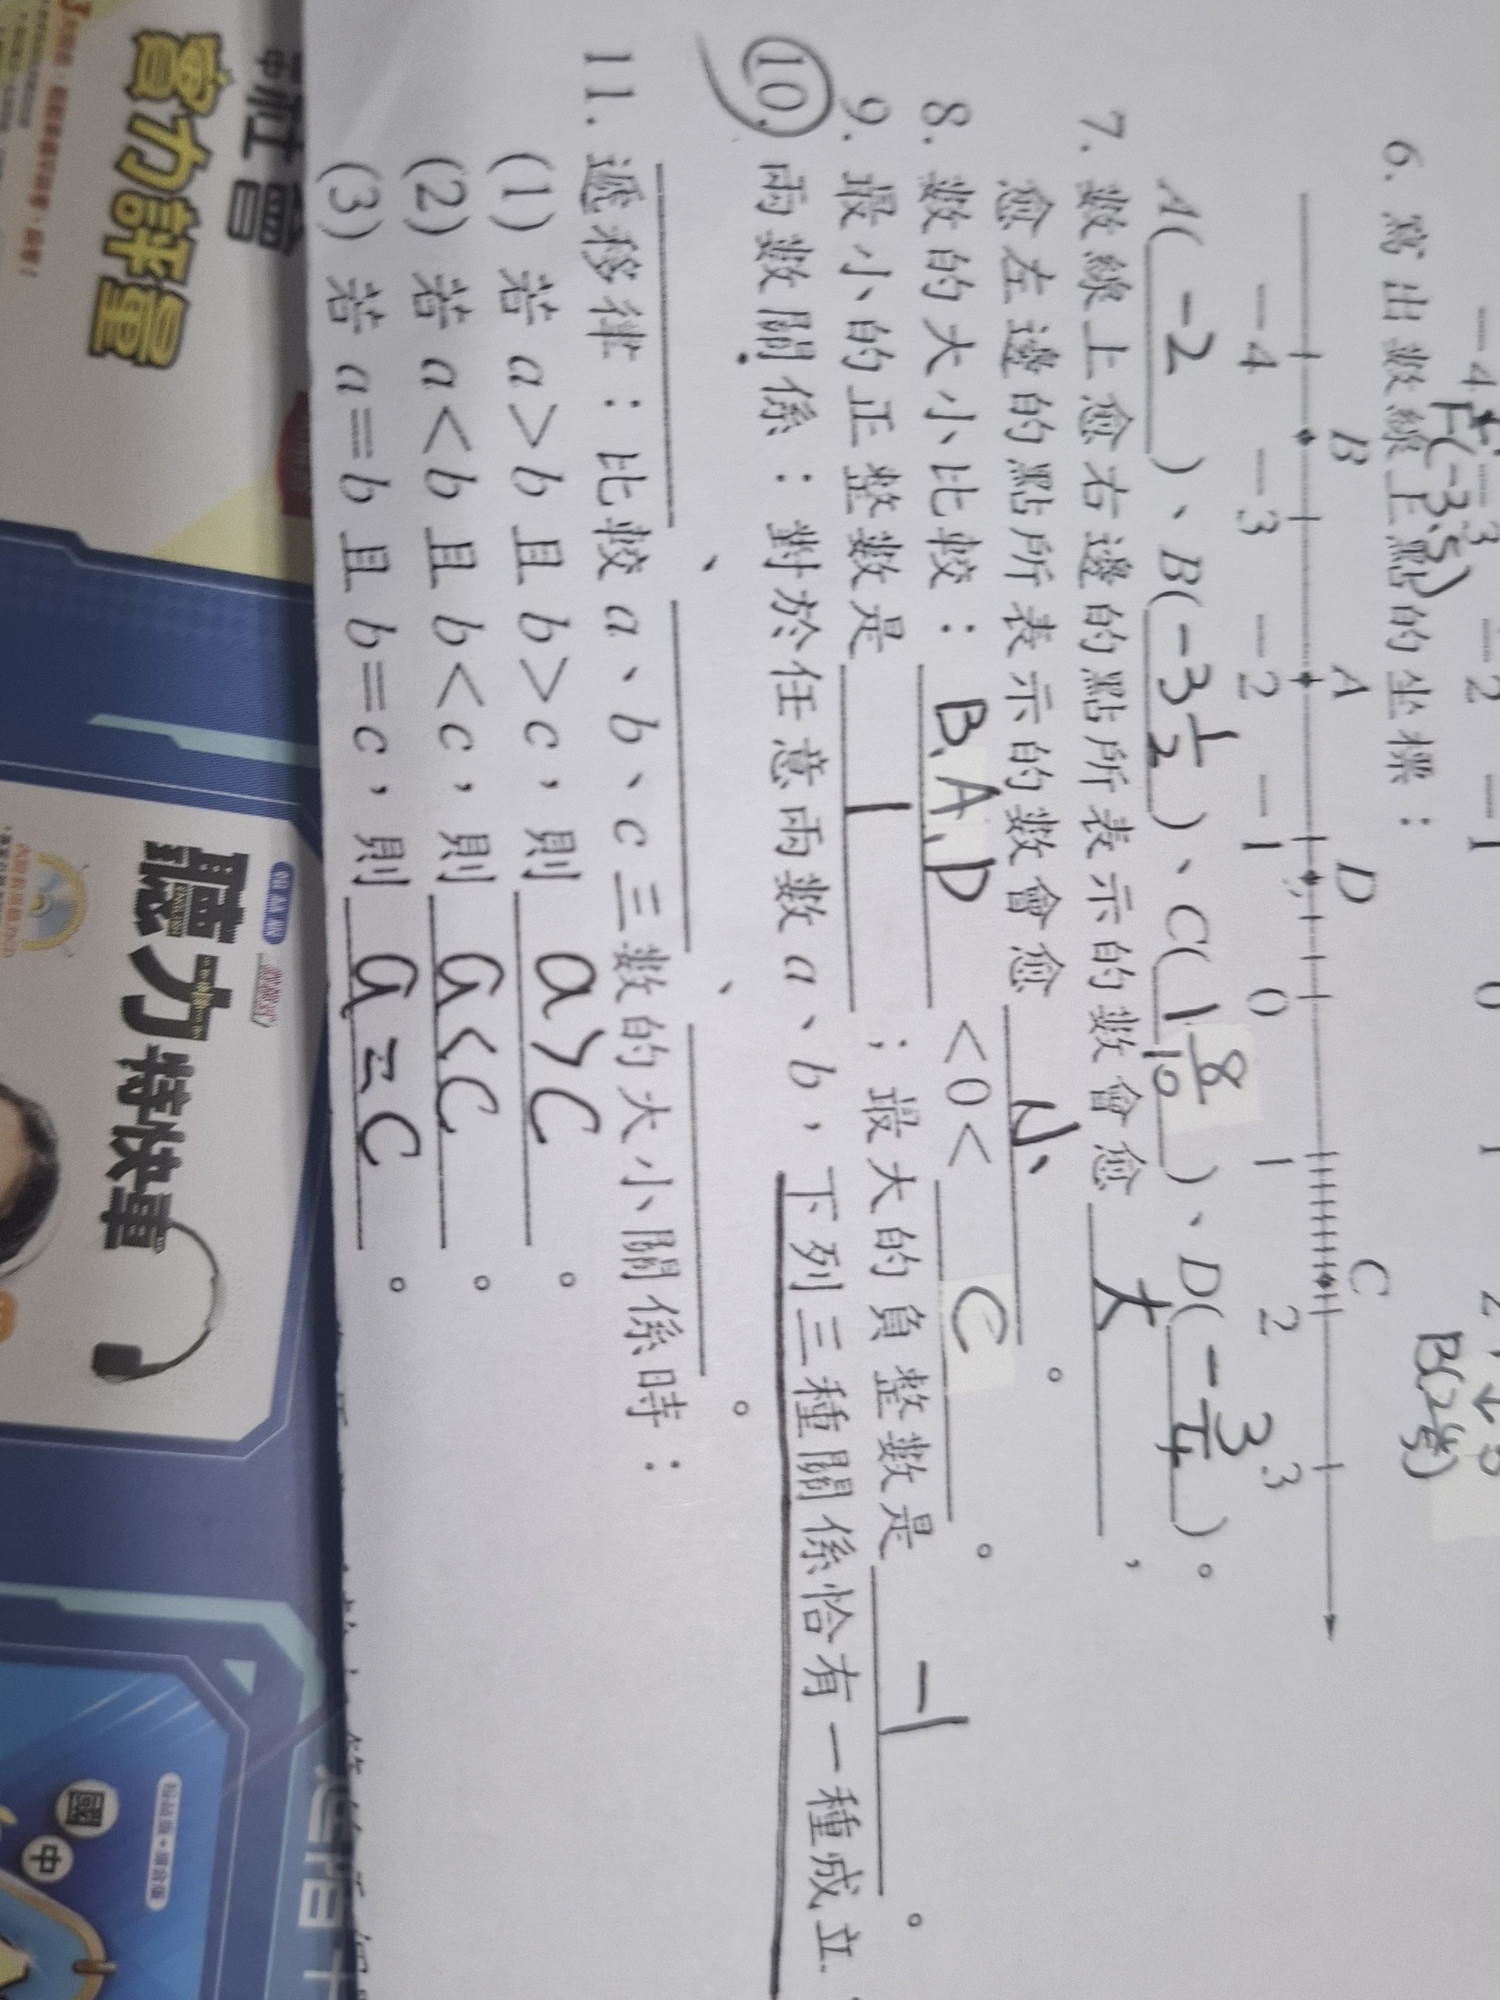 -4 -3 -2 -1 0 1 2
F(-3.5)
B(2
6. 寫出數線上點的坐標：
B A D C
-4 -3 -2 -1 0 1 2 3
A( -2 )、B( -3 1/2 )、C( 1 8/10 )、D( -3/4 )。
7. 數線上愈右邊的點所表示的數會愈 大 ，
愈左邊的點所表示的數會愈 小 。
8. 數的大小比較： B、A、D <0< C 。
9. 最小的正整數是 1 ；最大的負整數是 -1 。
10. 兩數關係：對於任意兩數 a、b，下列三種關係恰有一種成立
、 、 。
11. 遞移律：比較 a、b、c 三數的大小關係時：
(1) 若 a>b 且 b>c，則 a>c 。
(2) 若 a<b 且 b<c，則 a<c 。
(3) 若 a=b 且 b=c，則 a=c 。
社會
實力評量
聽力特快車
國
中